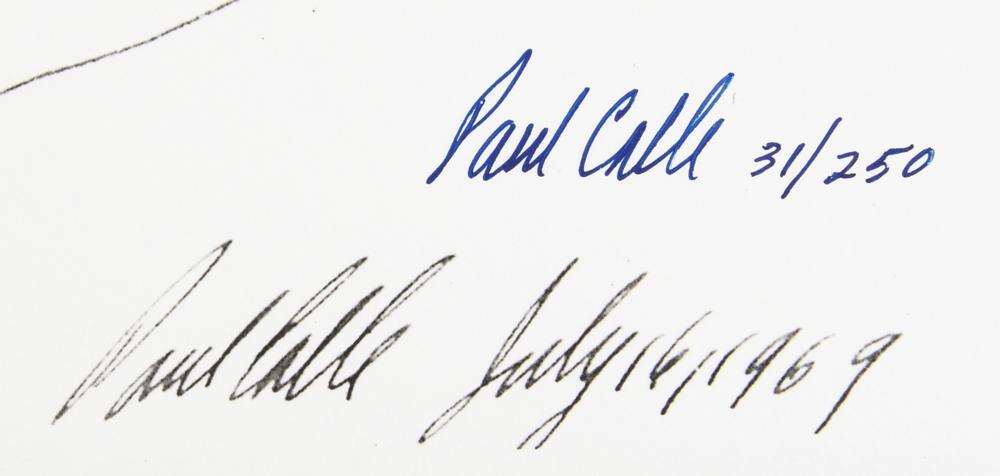 Paul Calle 31/250
Paul Calle July 16, 1969